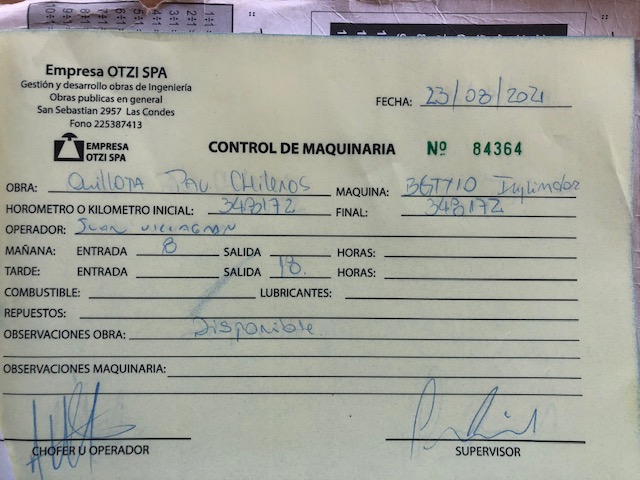 Empresa OTZI SPA
Gestión y desarrollo obras de Ingeniería
Obras publicas en general
San Sebastian 2957 Las Condes
Fono 225387413
FECHA: 23/08/2021
EMPRESA
OTZI SPA
CONTROL DE MAQUINARIA Nº 84364
OBRA: Quillota Pav Chilenos MAQUINA: BGTY10
HOROMETRO O KILOMETRO INICIAL: 348172 FINAL: 348172
OPERADOR: Juan
MAÑANA: ENTRADA 8 SALIDA HORAS:
TARDE: ENTRADA SALIDA 18. HORAS:
COMBUSTIBLE: LUBRICANTES:
REPUESTOS:
OBSERVACIONES OBRA: Disponible
OBSERVACIONES MAQUINARIA:
CHOFER U OPERADOR SUPERVISOR